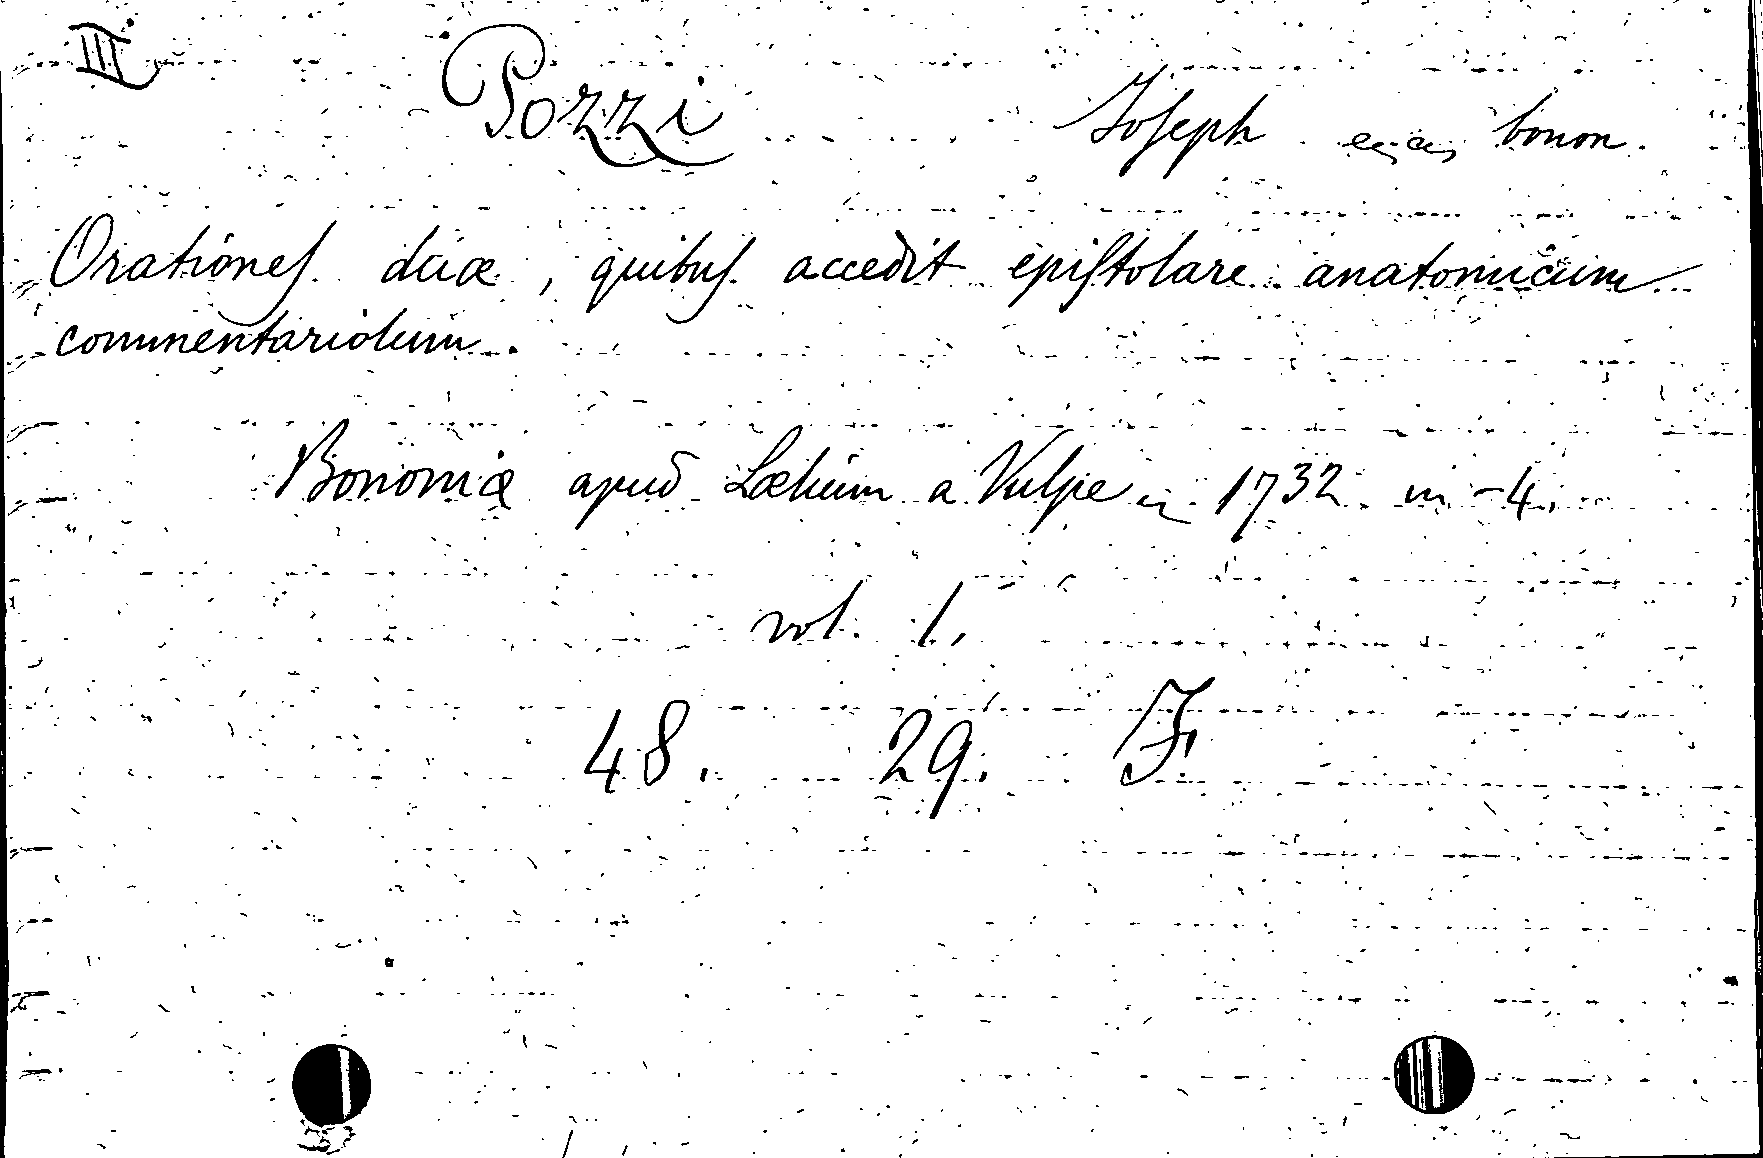 III
Pozzi Joseph bonon.
Orationes duæ, quibus accedit epistolare anatomicum
commentariolum.
Bononiæ apud Lælium a Vulpe 1732. in-4.
vol. 1.
48. 29. F